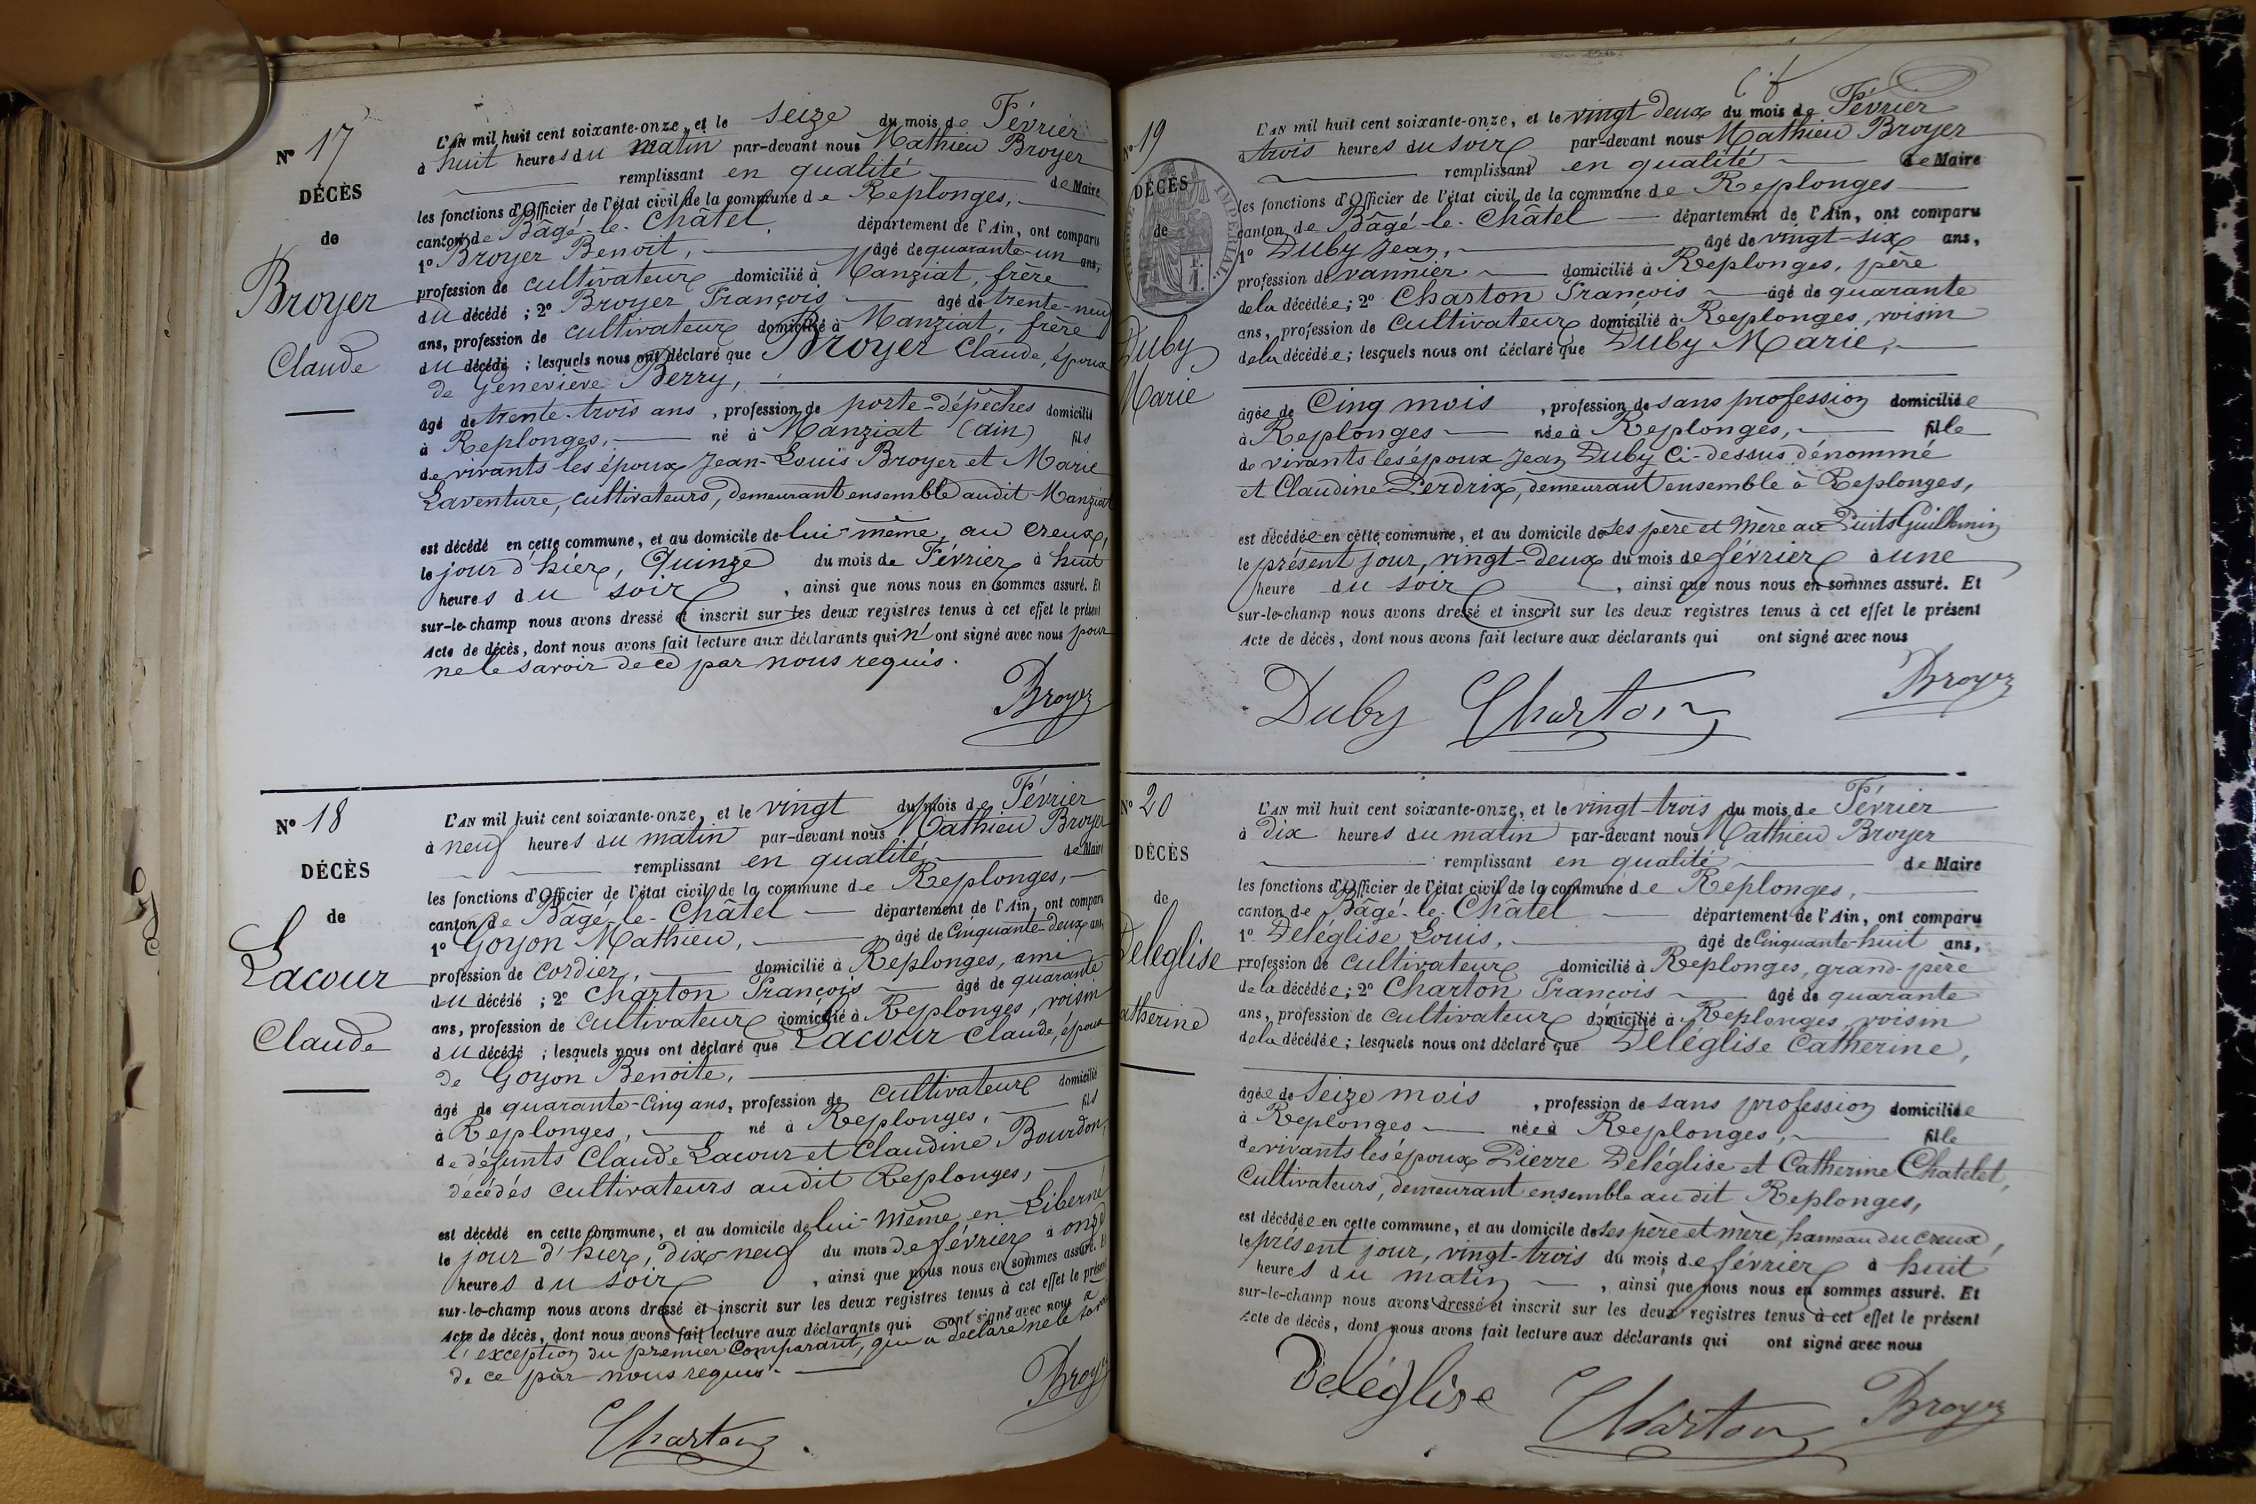 Nº 17
DÉCÈS
de
Broyer
Claude
L'AN mil huit cent soixante-onze, et le seize du mois de Février
à huit heures du matin par-devant nous Mathieu Broyer
remplissant en qualité de Maire
les fonctions d'Officier de l'état civil de la commune de Replonges,
canton de Bâgé-le-Châtel, département de l'Ain, ont comparu
1º Broyer Benoit, âgé de quarante-un ans,
profession de cultivateur domicilié à Manziat, frère
du décédé ; 2º Broyer François âgé de trente-neuf
ans, profession de cultivateur domicilié à Manziat, frère
du décédé ; lesquels nous ont déclaré que Broyer Claude, époux
de Geneviève Berry,
âgé de trente-trois ans, profession de porte-dépêches domicilié
à Replonges, né à Manziat (Ain) fils
de vivants les époux Jean-Louis Broyer et Marie
Laventure, cultivateurs, demeurant ensemble audit Manziat
est décédé en cette commune, et au domicile de lui-même, au Creux,
le jour d'hier, Quinze du mois de Février à huit
heures du soir, ainsi que nous nous en sommes assuré. Et
sur-le-champ nous avons dressé et inscrit sur les deux registres tenus à cet effet le présent
Acte de décès, dont nous avons fait lecture aux déclarants qui n'ont signé avec nous pour
ne le savoir de ce par nous requis.
Broyer
Nº 18
DÉCÈS
de
Lacour
Claude
L'AN mil huit cent soixante-onze, et le vingt du mois de Février
à neuf heures du matin par-devant nous Mathieu Broyer
remplissant en qualité de Maire
les fonctions d'Officier de l'état civil de la commune de Replonges,
canton de Bâgé-le-Châtel département de l'Ain, ont comparu
1º Goyon Mathieu, âgé de Cinquante-deux ans,
profession de cordier, domicilié à Replonges, ami
du décédé ; 2º Charton François âgé de quarante
ans, profession de cultivateur domicilié à Replonges, voisin
du décédé ; lesquels nous ont déclaré que Lacour Claude, époux
de Goyon Benoite,
âgé de quarante-Cinq ans, profession de cultivateur domicilié
à Replonges, né à Replonges, fils
de défunts Claude Lacour et Claudine Bourdon,
décédés cultivateurs audit Replonges,
est décédé en cette commune, et au domicile de lui-même, en Liberné
le jour d'hier, dix-neuf du mois de février à onze
heures du soir, ainsi que nous nous en sommes assuré. Et
sur-le-champ nous avons dressé et inscrit sur les deux registres tenus à cet effet le présent
Acte de décès, dont nous avons fait lecture aux déclarants qui ont signé avec nous à
l'exception du premier Comparant, qui a déclaré ne le savoir
de ce par nous requis.
Charton
Broyer
Nº 19
DÉCÈS
de
Duby
Marie
IMPÉRIAL.
L'AN mil huit cent soixante-onze, et le vingt deux du mois de Février
à trois heures du soir par-devant nous Mathieu Broyer
remplissant en qualité de Maire
les fonctions d'Officier de l'état civil de la commune de Replonges
canton de Bâgé-le-Châtel département de l'Ain, ont comparu
1º Duby Jean, âgé de vingt-six ans,
profession de vannier domicilié à Replonges, père
de la décédée ; 2º Charton François âgé de quarante
ans, profession de Cultivateur domicilié à Replonges, voisin
de la décédée ; lesquels nous ont déclaré que Duby Marie,
âgée de Cinq mois, profession de sans profession domiciliée
à Replonges née à Replonges, fille
de vivants les époux Jean Duby Ci-dessus dénommé
et Claudine Perdrix, demeurant ensemble à Replonges,
est décédée en cette commune, et au domicile de ses père et mère au Puits Guillemin
le présent jour, vingt-deux du mois de février à une
heure du soir, ainsi que nous nous en sommes assuré. Et
sur-le-champ nous avons dressé et inscrit sur les deux registres tenus à cet effet le présent
Acte de décès, dont nous avons fait lecture aux déclarants qui ont signé avec nous
Duby Charton Broyer
Nº 20
DÉCÈS
de
Deléglise
Catherine
L'AN mil huit cent soixante-onze, et le vingt-trois du mois de Février
à dix heures du matin par-devant nous Mathieu Broyer
remplissant en qualité de Maire
les fonctions d'Officier de l'état civil de la commune de Replonges,
canton de Bâgé-le-Châtel département de l'Ain, ont comparu
1º Deléglise Louis, âgé de Cinquante-huit ans,
profession de cultivateur domicilié à Replonges, grand-père
de la décédée ; 2º Charton François âgé de quarante
ans, profession de cultivateur domicilié à Replonges, voisin
de la décédée ; lesquels nous ont déclaré que Deléglise Catherine,
âgée de seize mois, profession de sans profession domiciliée
à Replonges née à Replonges, fille
de vivants les époux Pierre Deléglise et Catherine Chatelet,
Cultivateurs, demeurant ensemble au dit Replonges,
est décédée en cette commune, et au domicile de ses père et mère, hameau du Creux,
le présent jour, vingt-trois du mois de février à huit
heures du matin, ainsi que nous nous en sommes assuré. Et
sur-le-champ nous avons dressé et inscrit sur les deux registres tenus à cet effet le présent
Acte de décès, dont nous avons fait lecture aux déclarants qui ont signé avec nous
Deléglise Charton Broyer